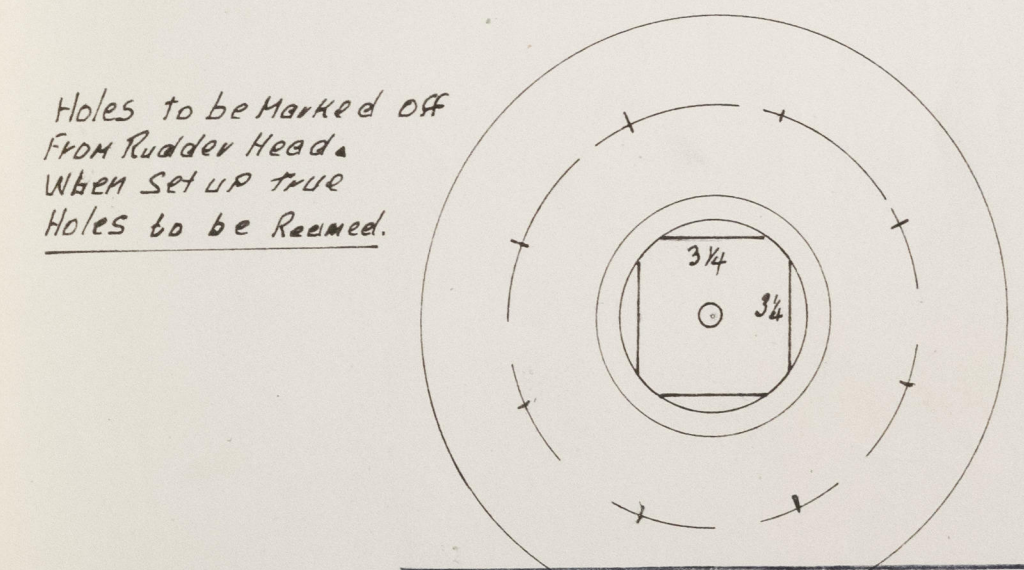 Holes to be Marked off
From Rudder Head.
When Set up true
Holes to be Reamed.
3 1/4
3 1/4